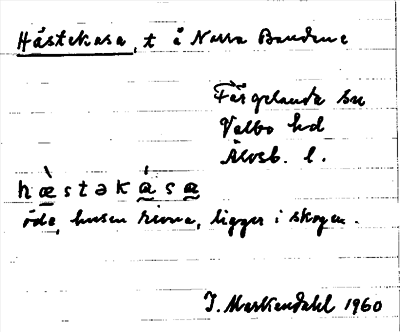 Håstekasa, t å Norra Bondane
Färgelanda sn
Valbo hd
Älvsb. l.
hæ̀stəká̰sa̰
öde, husen rivna, ligger i skogen.
J. Markendahl 1960